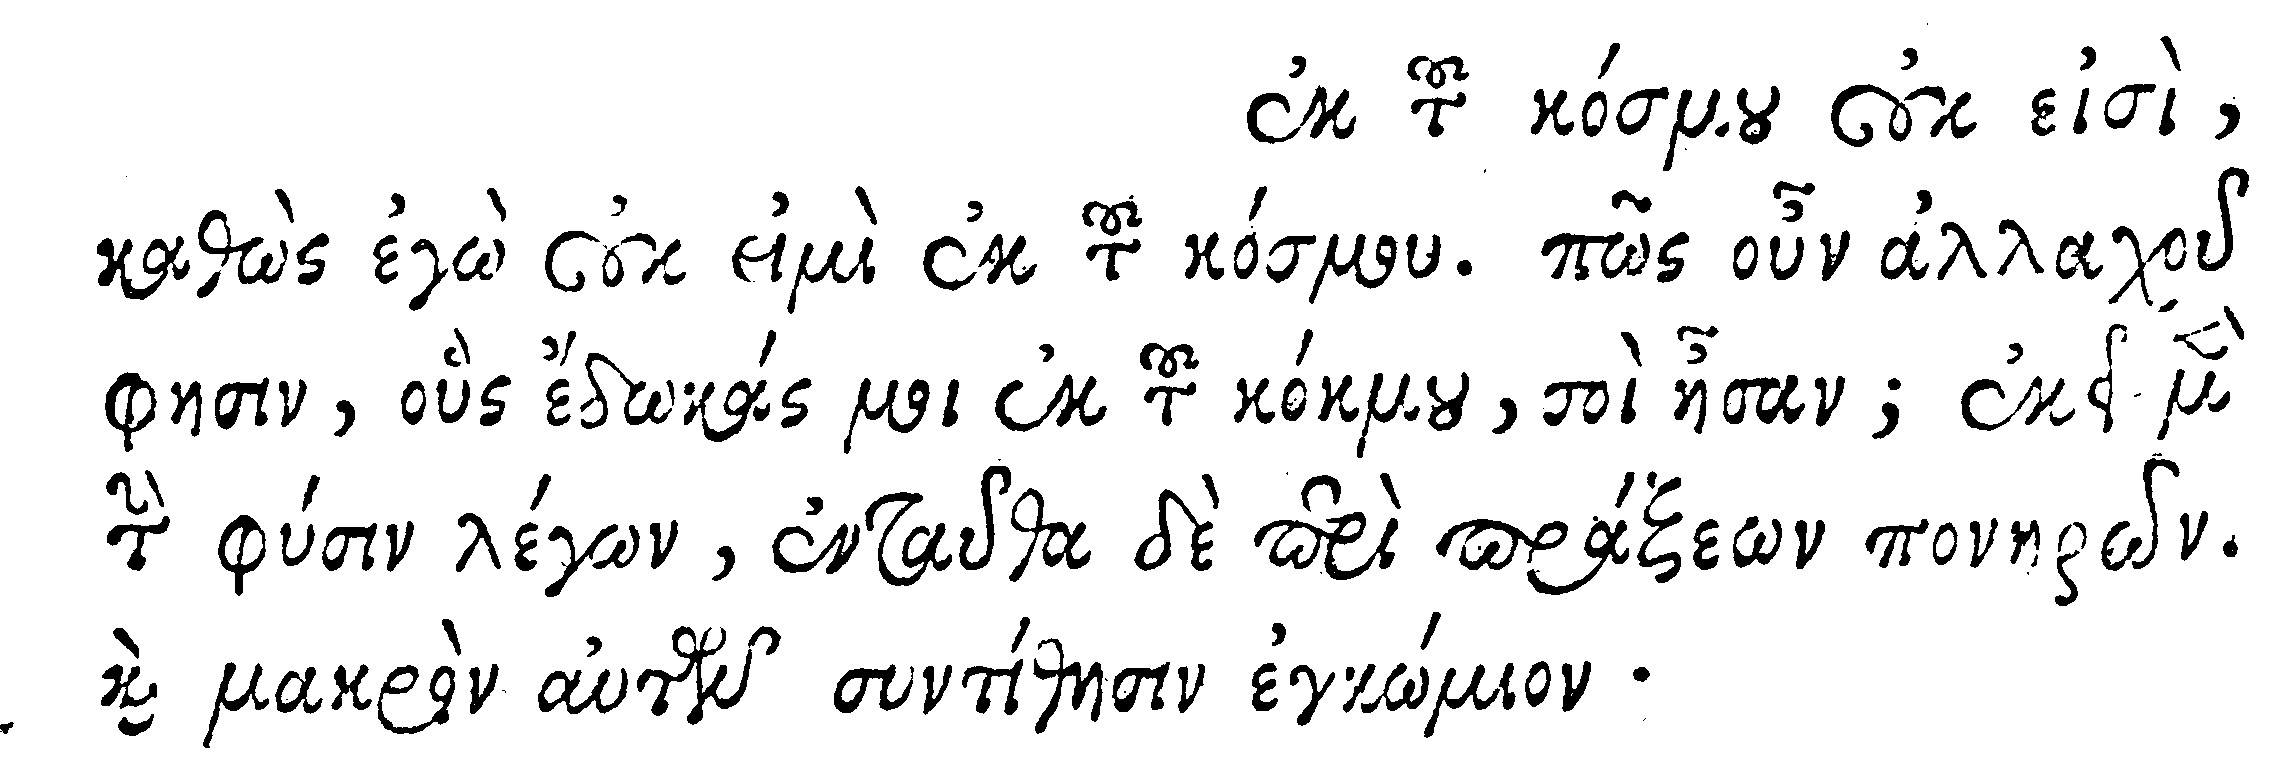 ἐκ τοῦ κόσμου οὐκ εἰσὶ,
καθὼς ἐγὼ οὐκ εἰμὶ ἐκ τοῦ κόσμου. πῶς οὖν ἀλλαχοῦ
φησιν, οὓς ἔδωκάς μοι ἐκ τοῦ κόκμου, σοὶ ἦσαν; ἐκεῖ μὲν
τὴν φύσιν λέγων, ἐνταῦθα δὲ περὶ πράξεων πονηρῶν.
καὶ μακρὸν συντίθησιν ἐγκώμιον.